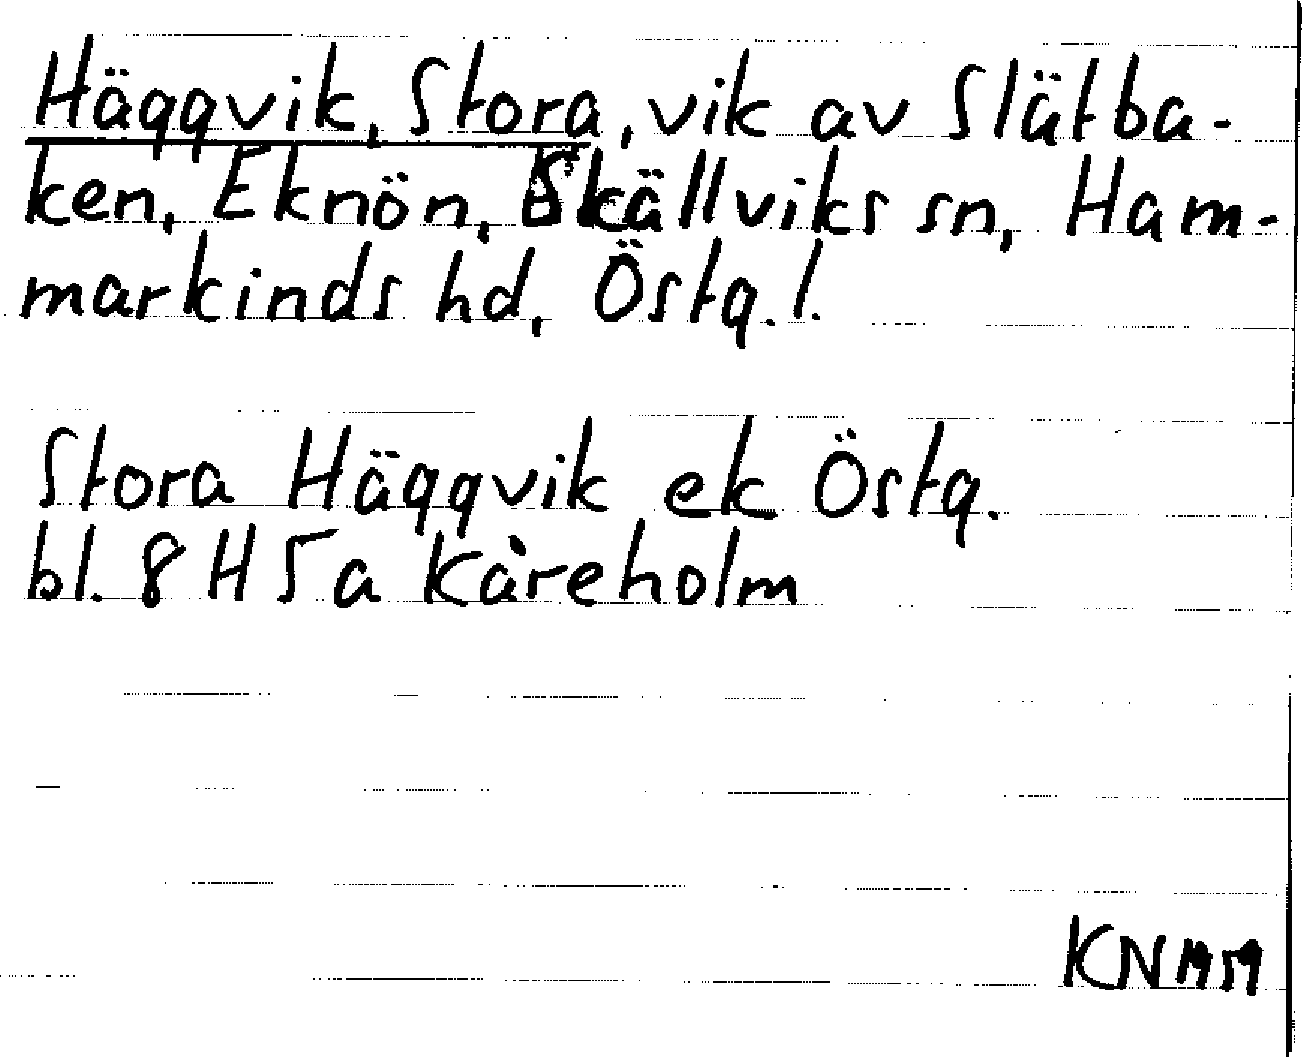 Häggvik, Stora, vik av Slätba-
ken, Eknön, Skällviks sn, Ham-
markinds hd, Östg. l.
Stora Häggvik ek Östg.
bl. 8 H 5 a Kåreholm